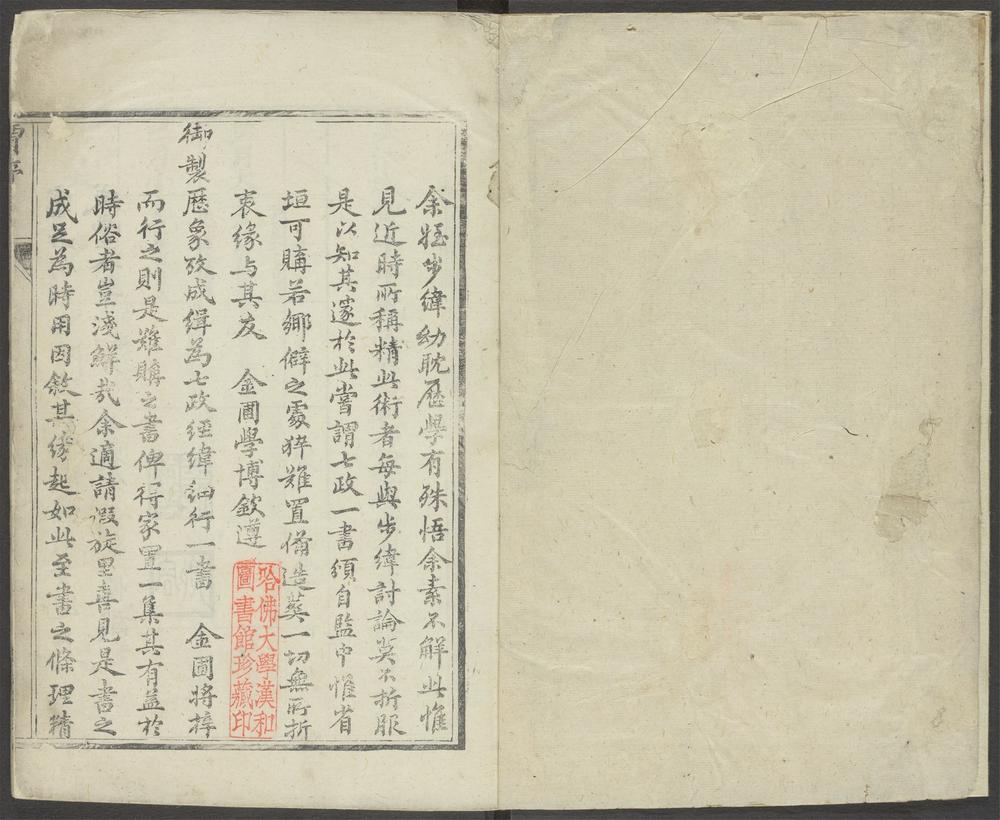 余姪步緯幼耽歷學有殊悟余素不解此惟
見近時所稱精此術者每與步緯討論莫不折服
是以知其邃於此嘗謂七政一書頒自監中惟省
垣可購若鄉僻之處猝難置備造葬一切無所折
衷緣与其友 金圃學博欽遵
御製歷象攷成緝為七政經緯細行一書 金圃將梓
而行之則是難購之書俾得家置一集其有益於
時俗者豈淺鮮哉余適請假旋里喜見是書之
成足為時用因敘其緣起如此至書之條理精
哈佛大學漢和
圖書館珍藏印